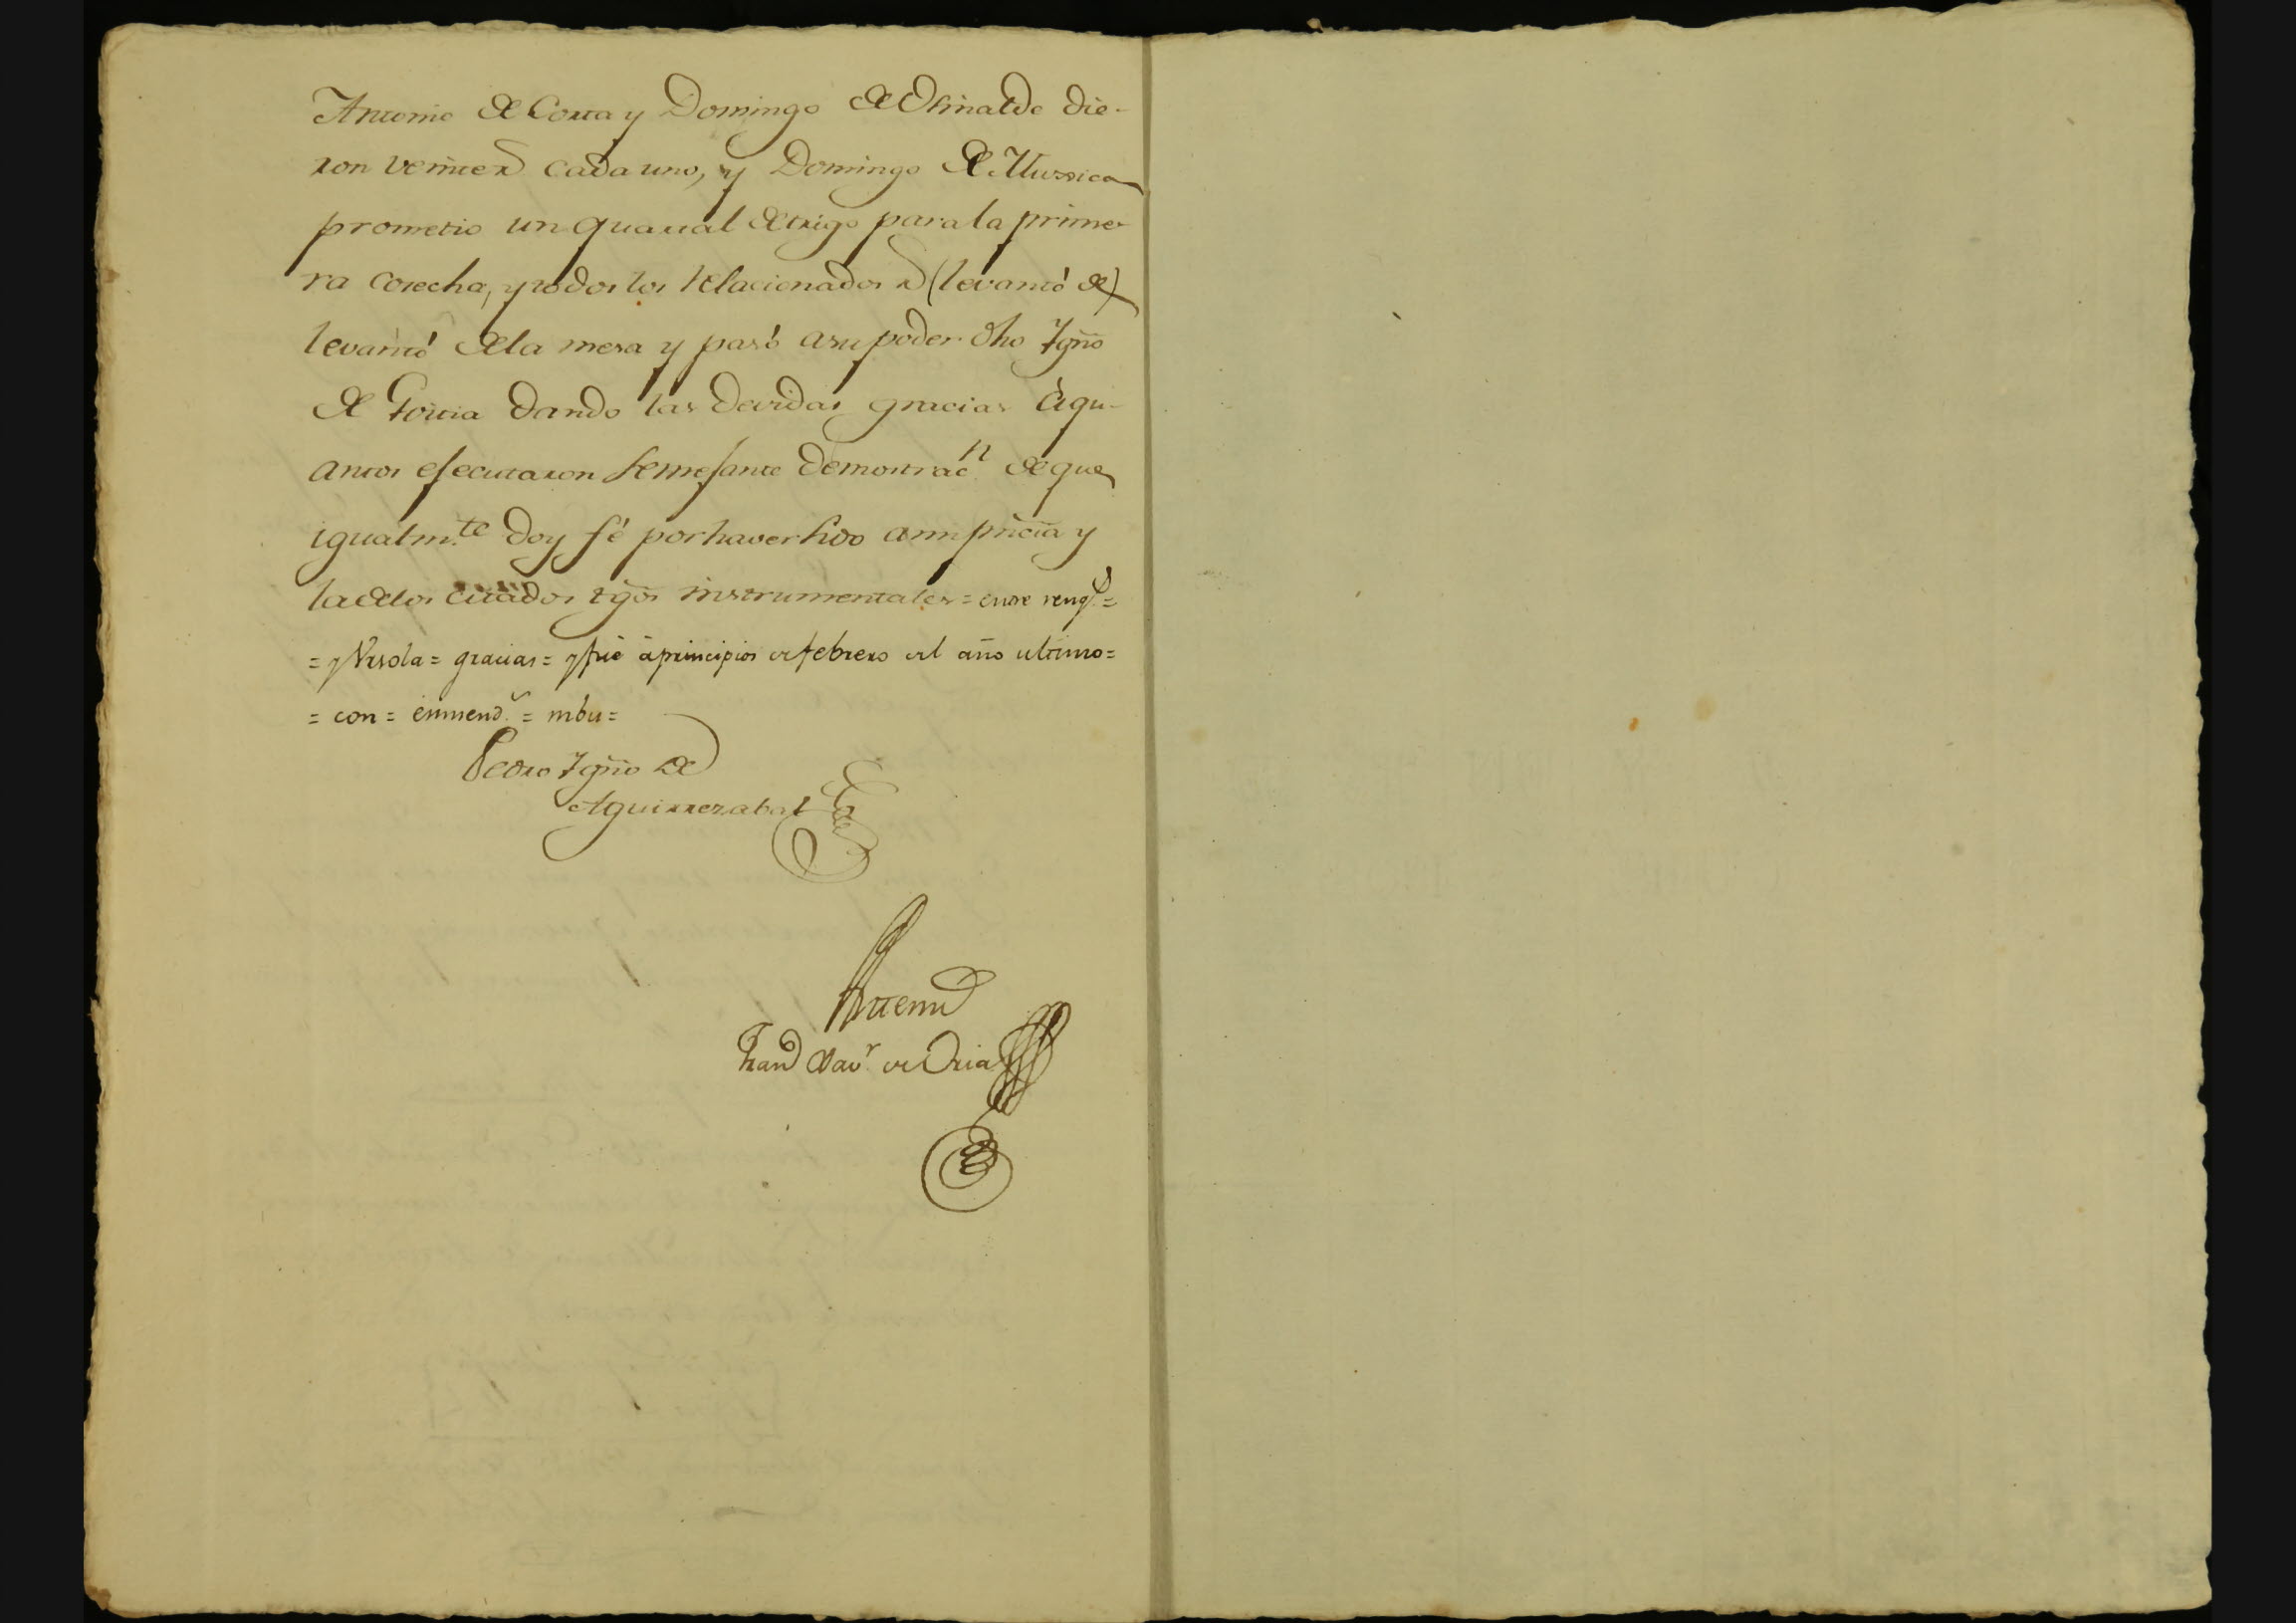 Antonio de Corta y Domingo de Olinalde die-
ron veinte r.s cada uno, y Domingo de Mussica
prometio un quartal de trigo para la prime-
ra cosecha, y todos los relacionados r.s (levantó de)
levantó de la mesa y pasó a su poder dho Ygñio
de Goitia dando las devidas gracias à qu-
antos efecutaron semefante demostrac.n de que
igualm.te doy fé por haver sido a mi prñcia y
la de los citados tgõs instrumentales = entre reng.s =
= y Ursola = gracias = y fué à principios de febrero del año ultimo =
= con = enmend.o = mbu =
Pedro Ygñio de
Aguirrezabal
Ante mi
Fran.co Xav.r de Oria